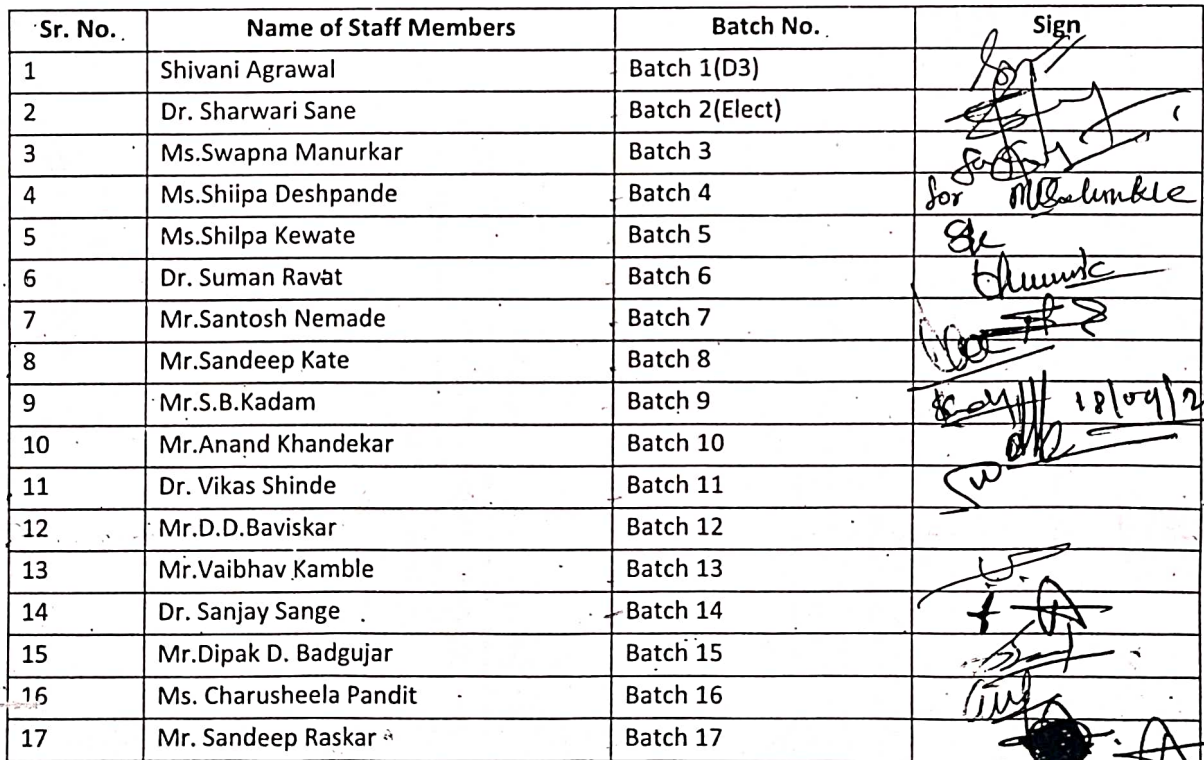 Sr. No. Name of Staff Members Batch No. Sign
1 Shivani Agrawal Batch 1(D3)
2 Dr. Sharwari Sane Batch 2(Elect)
3 Ms.Swapna Manurkar Batch 3
4 Ms.Shiipa Deshpande Batch 4 for
5 Ms.Shilpa Kewate Batch 5
6 Dr. Suman Ravat Batch 6
7 Mr.Santosh Nemade Batch 7
8 Mr.Sandeep Kate Batch 8
9 Mr.S.B.Kadam Batch 9
10 Mr.Anand Khandekar Batch 10
11 Dr. Vikas Shinde Batch 11
12 Mr.D.D.Baviskar Batch 12
13 Mr.Vaibhav Kamble Batch 13
14 Dr. Sanjay Sange Batch 14
15 Mr.Dipak D. Badgujar Batch 15
16 Ms. Charusheela Pandit Batch 16
17 Mr. Sandeep Raskar Batch 17